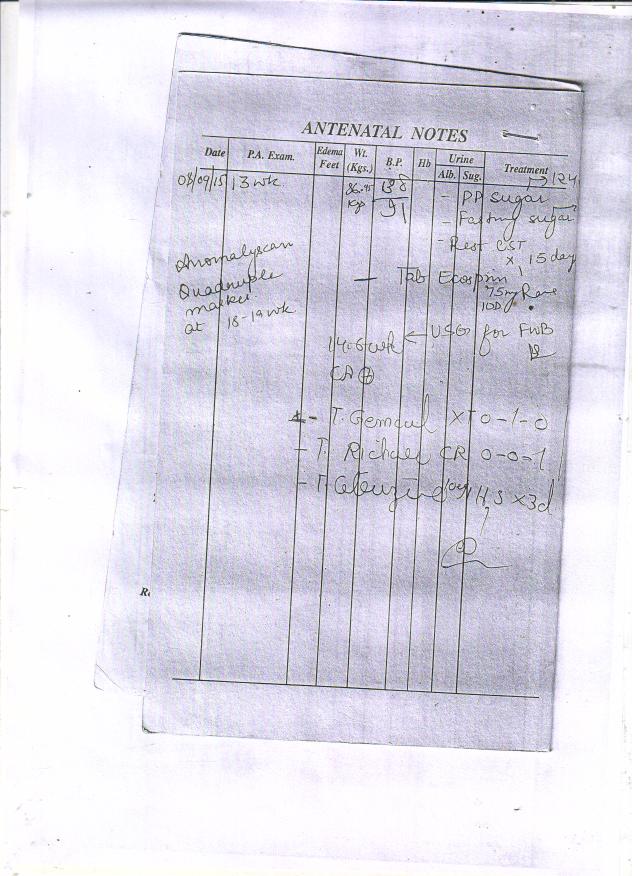 ANTENATAL NOTES
Date P.A. Exam. Edema Feet Wt. (Kgs.) B.P. Hb Urine Alb. Sug. Treatment
08/09/15 13 wk. 86.95 kgs 138/91 - PP sugar → 124
- Fasting sugar
- Rest CST
x 15 day
Anomaly scan
Quadruple
marker
at 18-19 wk
— Tab Ecosprin
75mg
10D
← USG for FWB
CA +
- T. Gemcal XT 0-1-0
- T. CR 0-0-1
- T. HS x3d